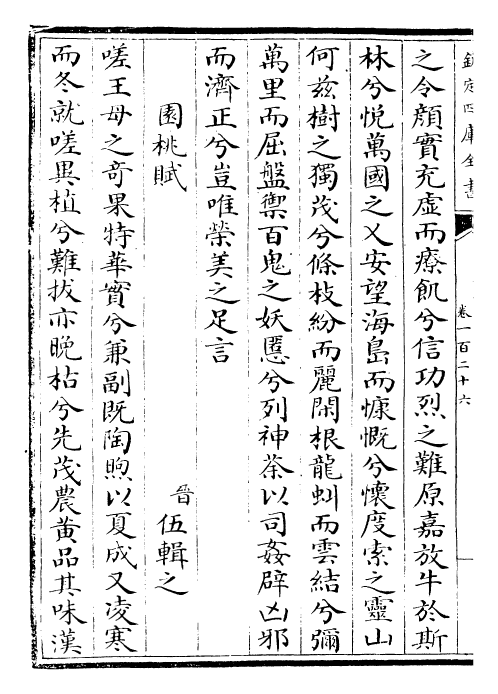 欽定四庫全書
卷一百二十六
之令顔實充虚而療飢兮信功烈之難原嘉放牛於斯
林兮悦萬國之乂安望海島而慷慨兮懷度索之靈山
何兹樹之獨茂兮條枝紛而麗閑根龍虯而雲結兮彌
萬里而屈盤禦百鬼之妖慝兮列神荼以司姦辟凶邪
而濟正兮豈唯榮美之足言
園桃賦
晉 伍輯之
嗟王母之奇果特華實兮兼副既陶煦以夏成又凌寒
而冬就嗟異植兮難拔亦晚枯兮先茂農黄品其味漢